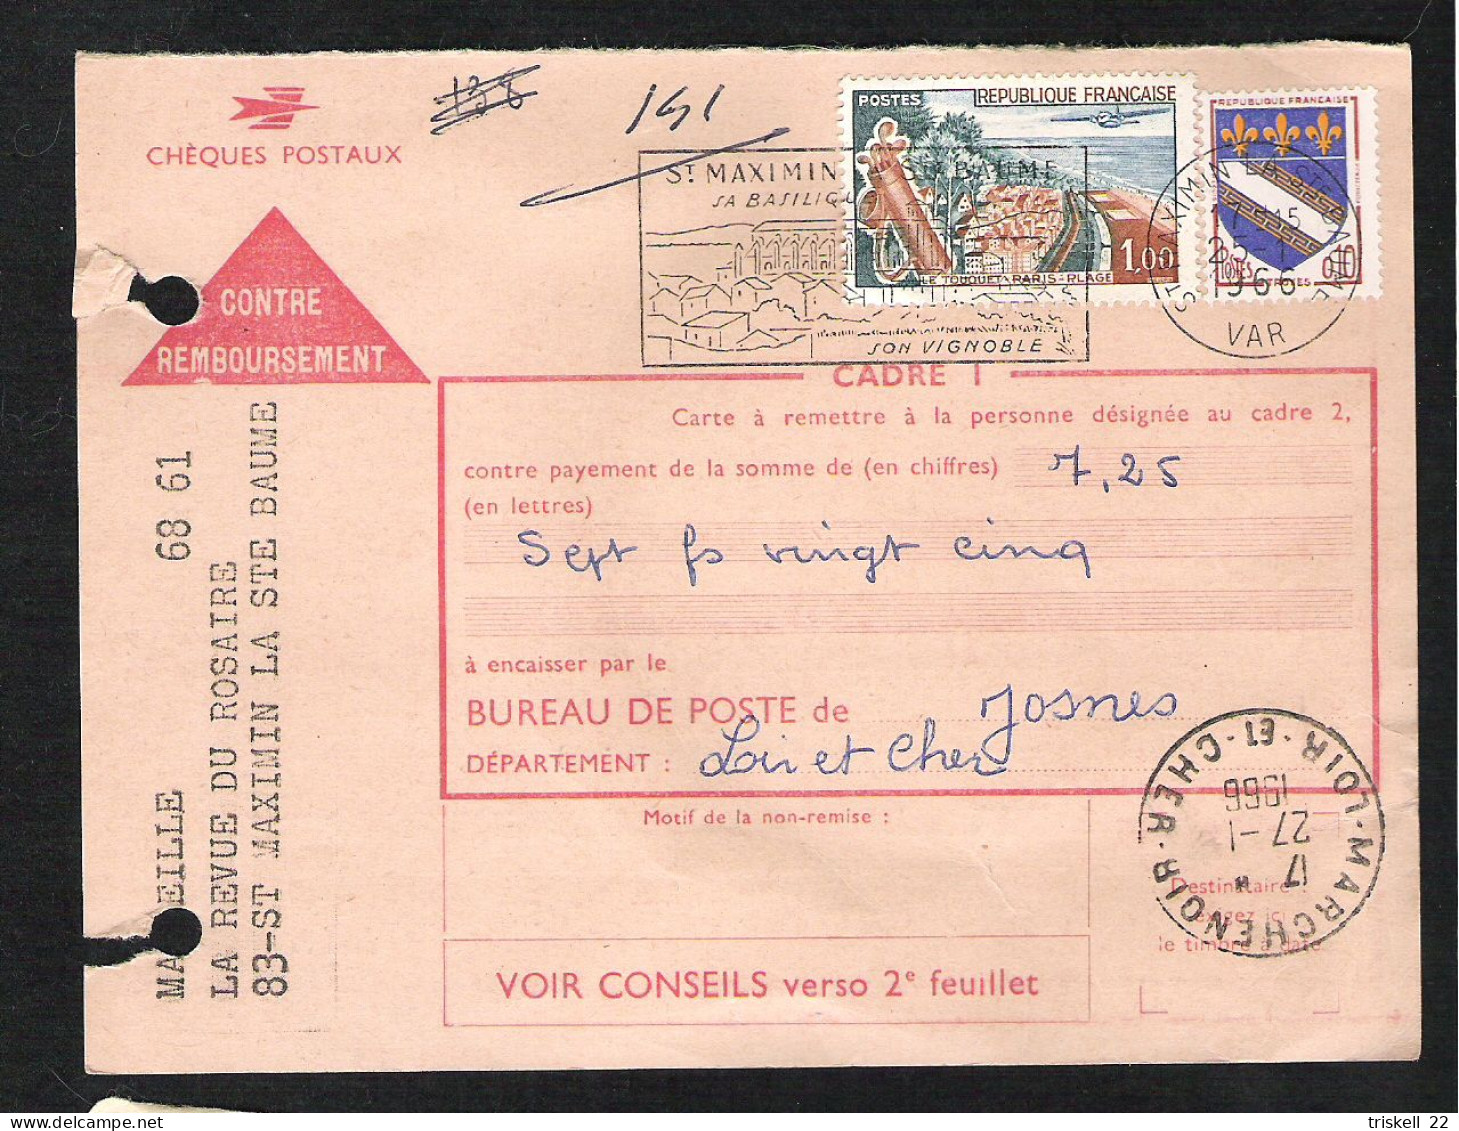 138
191
CHÈQUES POSTAUX
POSTES
REPUBLIQUE FRANÇAISE
1,00
LE TOUQUET-PARIS-PLAGE
REPUBLIQUE FRANÇAISE
POSTES
0,10
ST MAXIMIN LA STE BAUME
SA BASILIQUE
SON VIGNOBLE
ST MAXIMIN LA STE BAUME
17 H 15
25-1
1966
VAR
CONTRE
REMBOURSEMENT
CADRE 1
Carte à remettre à la personne désignée au cadre 2,
contre payement de la somme de (en chiffres) 7,25
(en lettres)
Sept fs vingt cinq
à encaisser par le
BUREAU DE POSTE de Josnes
DÉPARTEMENT : Loir et Cher
Motif de la non-remise :
VOIR CONSEILS verso 2e feuillet
Destinataire :
exigez ici
le timbre à date
MARCHENOIR
LOIR-ET-CHER
17 H
27-1
1966
68 61
LA REVUE DU ROSAIRE
83-ST MAXIMIN LA STE BAUME
triskell 22